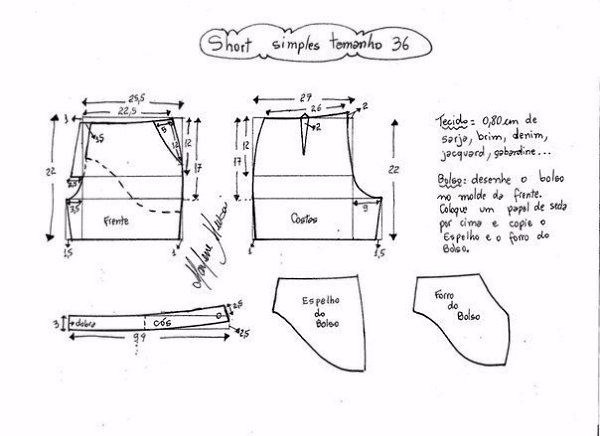 Short simples tamanho 36
25,5
22,5
3
3,5
5
12
12
17
22
2,5
3,5
Frente
1,5
1
27
26
2
2
12
17
22
9
Costas
1
1,5
Tecido: 0,80 cm de
sarja, brim, denim,
jacquard, gabardine...
Bolso: desenhe o bolso
no molde da frente.
Coloque um papel de seda
por cima e copie o
Espelho e o forro do
Bolso.
3
dobra
cós
2,5
2,5
99
Espelho
do
Bolso
Forro
do
Bolso